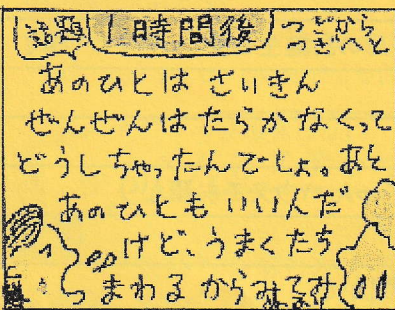 話題 1時間後 つぎから
つぎへと
あのひとは さいきん
ぜんぜんはたらかなくって
どうしちゃったんでしょ。あと
あのひともいいんだ
けど、うまくたち
まわるから